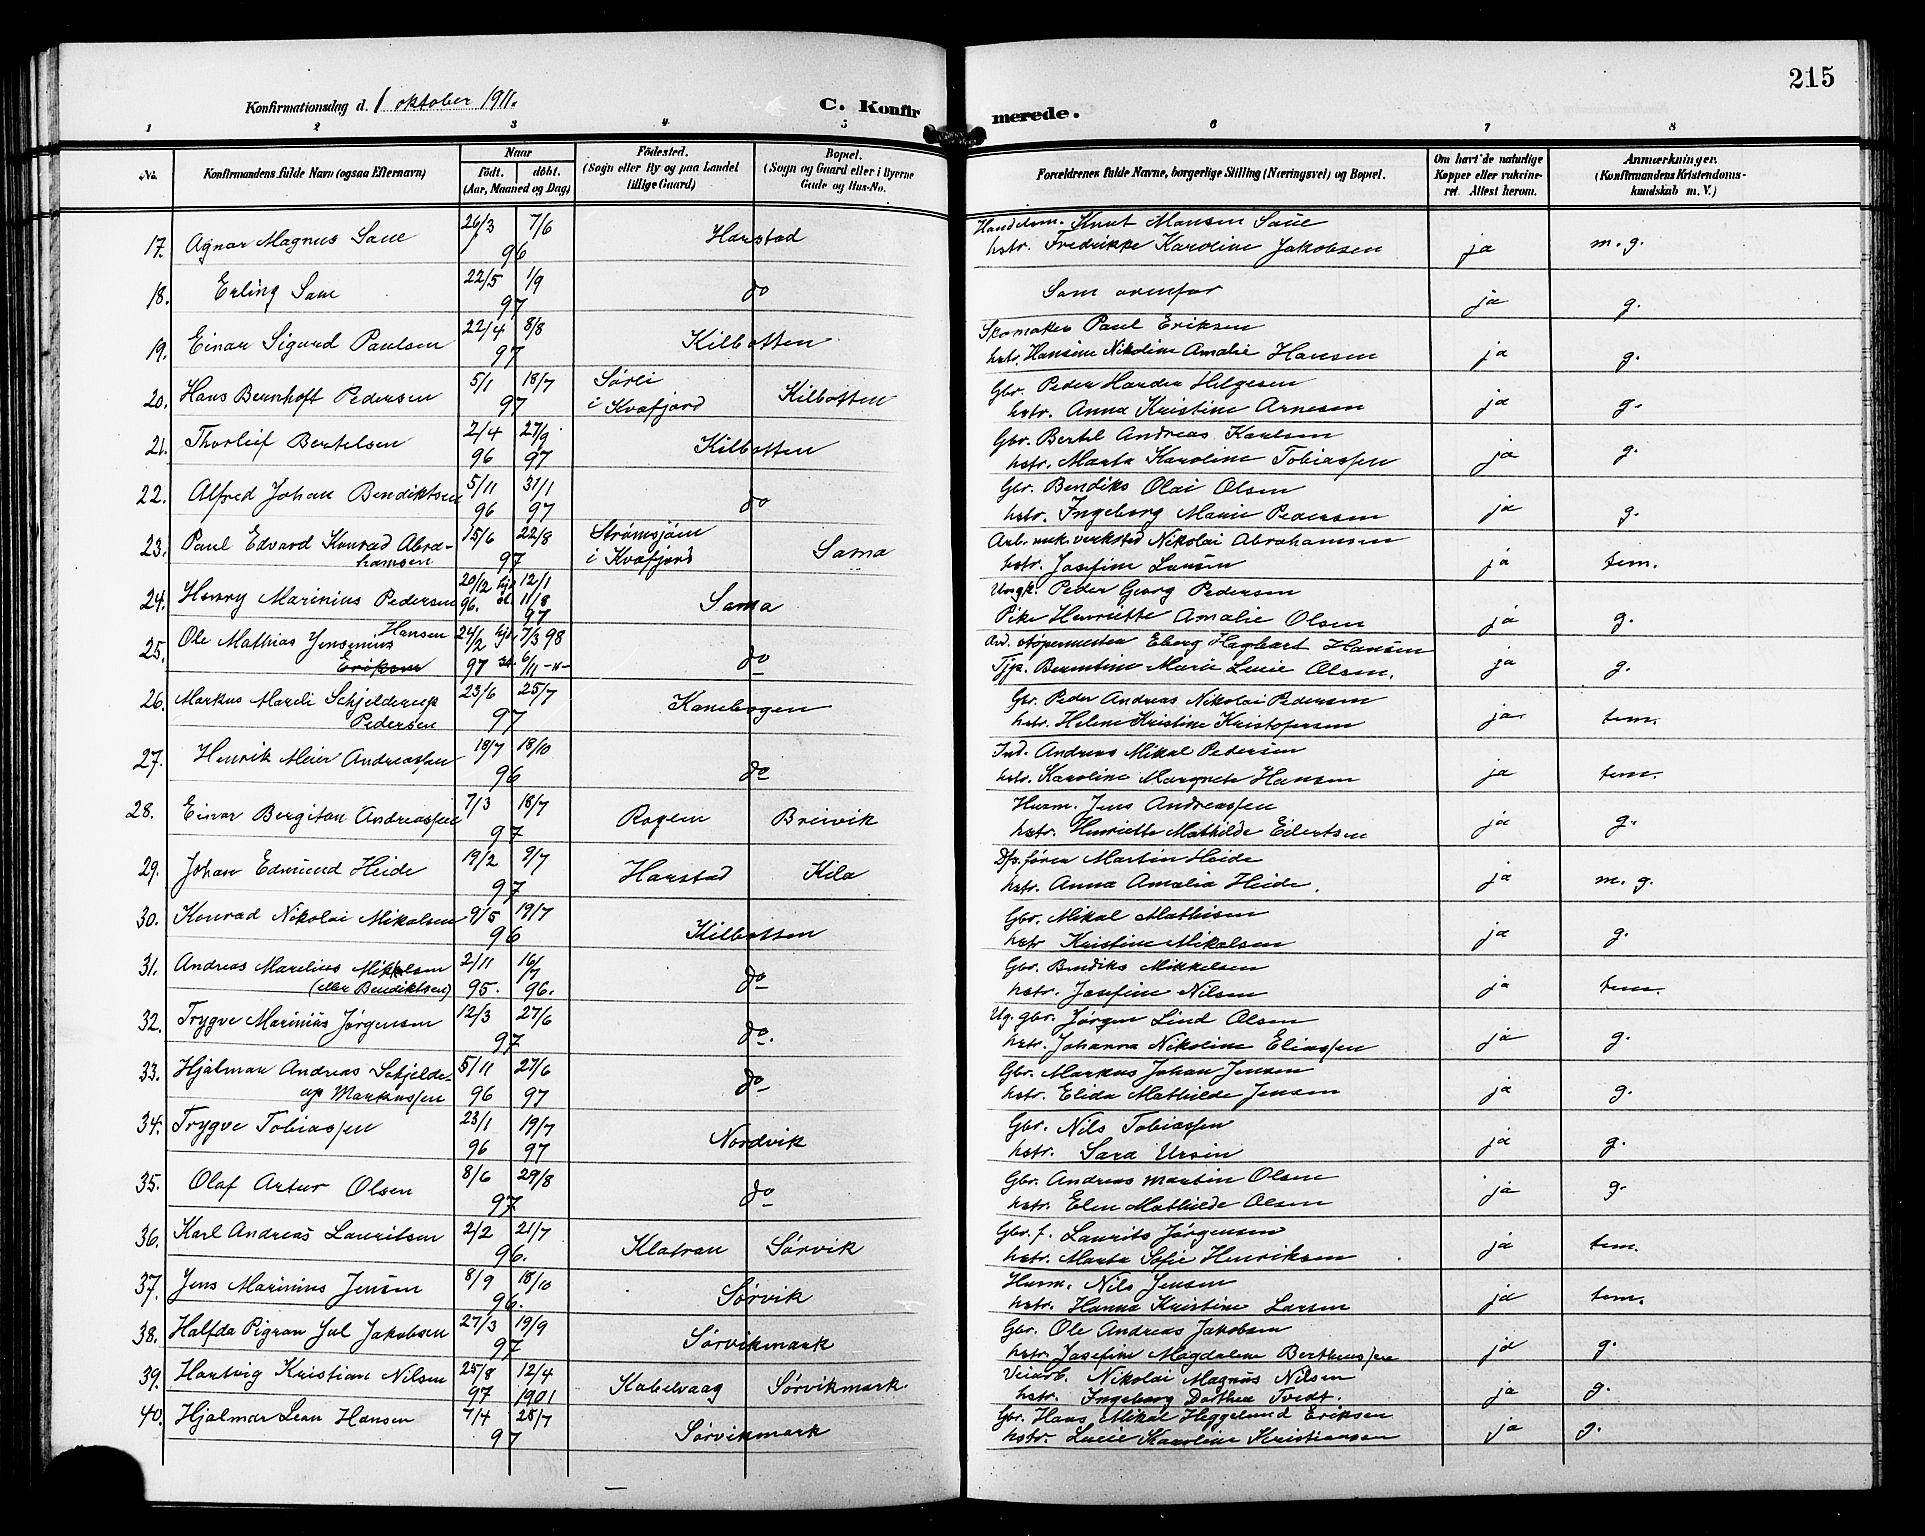 215
Konfirmationsdag d. 1 oktober 1911.
C. Konfirmerede.
1 2 3 4 5 6 7 8
No. Konfirmandens fulde Navn (ogsaa Efternavn) Naar født. døbt. (Aar, Maaned og Dag) Födested. (Sogn eller By og paa Landet tillige Gaard) Bopæl. (Sogn og Gaard eller i Byerne Gade og Hus-No. Forældrenes fulde Navne, borgerlige Stilling (Næringsvei) og Bopæl. Om havt de naturlige Kopper eller vakcineret. Attest herom. Anmærkninger. (Konfirmandens Kristendomskundskab m. V.)
17. Agnar Magnus Saue 26/3 7/6 96 Harstad Handelsm. Knut Mansen Saue
hstr. Fredrikke Karoline Jakobsen ja m. g.
18. Erling Saue 22/5 1/9 97 do Som ovenfor ja g.
19. Einar Sigurd Paulsen 22/4 8/8 97 Kilbotten Skomaker Paul Eriksen
hstr. Hansine Nikoline Amalie Hansen ja g.
20. Hans Bernhoft Pedersen 5/1 18/7 97 Sørli i Kvæfjord Kilbotten Gbr. Peder Harder Helgesen
hstr. Anna Kristine Arnesen ja g.
21. Thorleif Bertelsen 2/4 96 27/9 97 Kilbotten Gbr. Bertel Andreas Karlsen
hstr. Marta Karoline Tobiassen ja g.
22. Alfred Johan Bendiktsen 5/11 96 31/1 97 do Gbr. Bendiks Olai Olsen
hstr. Ingeborg Marie Pedersen ja g.
23. Paul Edvard Konrad Abrahamsen 15/6 22/8 97 i Kvæfjord Sama Arb. mek. verksted Nikolai Abrahamsen
hstr. Josefine Larsen ja tem.
24. Henry Marinius Pedersen 20/12 96. hjd. 12/1 st. 11/8 97 Sama Ungk. Peder Georg Pedersen
Pike Henriette Amalie Olsen ja g.
25. Ole Mathias Jensenius Hansen Eriksen 24/2 97 hjd. 7/3 98 st. 6/11 -"- do støpermester Eberg Hagbart Hansen
Tjp. Berntine Marie Lucie Olsen. ja g.
26. Markus Mareli Schjelderup Pedersen 23/6 25/7 97 Kanebogen Gbr. Peder Andreas Nikolai Pedersen
hstr. Helene Kristine Kristofersen ja tem.
27. Henrik Meier Andreassen 18/7 18/10 96 do Ind. Andreas Mikal Pedersen
hstr. Karoline Margrete Hansen ja tem.
28. Einar Bergiton Andreassen 7/3 18/7 97 Rogen Breivik Husm. Jens Andreassen
hstr. Henriette Mathilde Eilertsen ja g.
29. Johan Edmund Heide 19/2 9/7 97 Harstad Kila Dfs. fører Martin Heide
hstr. Anna Amalia Heide. ja m. g.
30. Konrad Nikolai Mikalsen 9/5 19/7 96 Kilbotten Gbr. Mikal Mathisen
hstr Kristine Mikalsen ja g.
31. Andreas Marelius Mikkelsen (eller Bendiktsen) 2/11 95. 16/7 96. do Gbr. Bendiks Mikkelsen
hstr. Josefine Nilsen ja tem.
32. Trygve Marinius Jørgensen 12/3 27/6 97 do. Ug. gbr. Jørgen Lind Olsen
hstr. Johanna Nikoline Eliassen ja g.
33. Hjalmar Andreas Schjelderup Markussen 5/11 96 27/6 97 do Gbr. Markus Johan Jensen
hstr. Elida Mathilde Jensen ja g.
34. Trygve Tobiassen 23/1 96 19/7 97 Nordvik Gbr. Nils Tobiassen
hstr. Sara Ursin ja g.
35. Olaf Artur Olsen 8/6 29/8 97 do Gbr. Andreas Martin Olsen
hstr. Elen Mathilde Olsen ja g.
36. Karl Andreas Lauritsen 2/2 21/7 96. Klatran Sørvik Gbr. f. Laurits Jørgensen
hstr. Marta Sofie Henriksen ja tem.
37. Jens Marinius Jensen 8/9 18/10 96. Sørvik Husm. Nils Jensen
hstr. Hanna Kristine Larsen ja tem.
38. Halfda Pigran Jul Jakobsen 27/3 19/9 97 Sørvikmark Gbr. Ole Andreas Jakobsen
hstr. Josefine Magdalene Bertheussen ja g.
39. Hartvig Kristian Nilsen 25/8 97 12/4 1901 Kabelvaag Sørvikmark. Veiarb. Nikolai Magnus Nilsen
hstr. Ingeborg Dorthea Tvedt. ja g.
40. Hjalmar Lean Hansen 7/4 25/7 97 Sørvikmark Gbr. Hans Mikal Heggelund Eriksen
hstr. Lucie Karoline Kristiansen ja g.